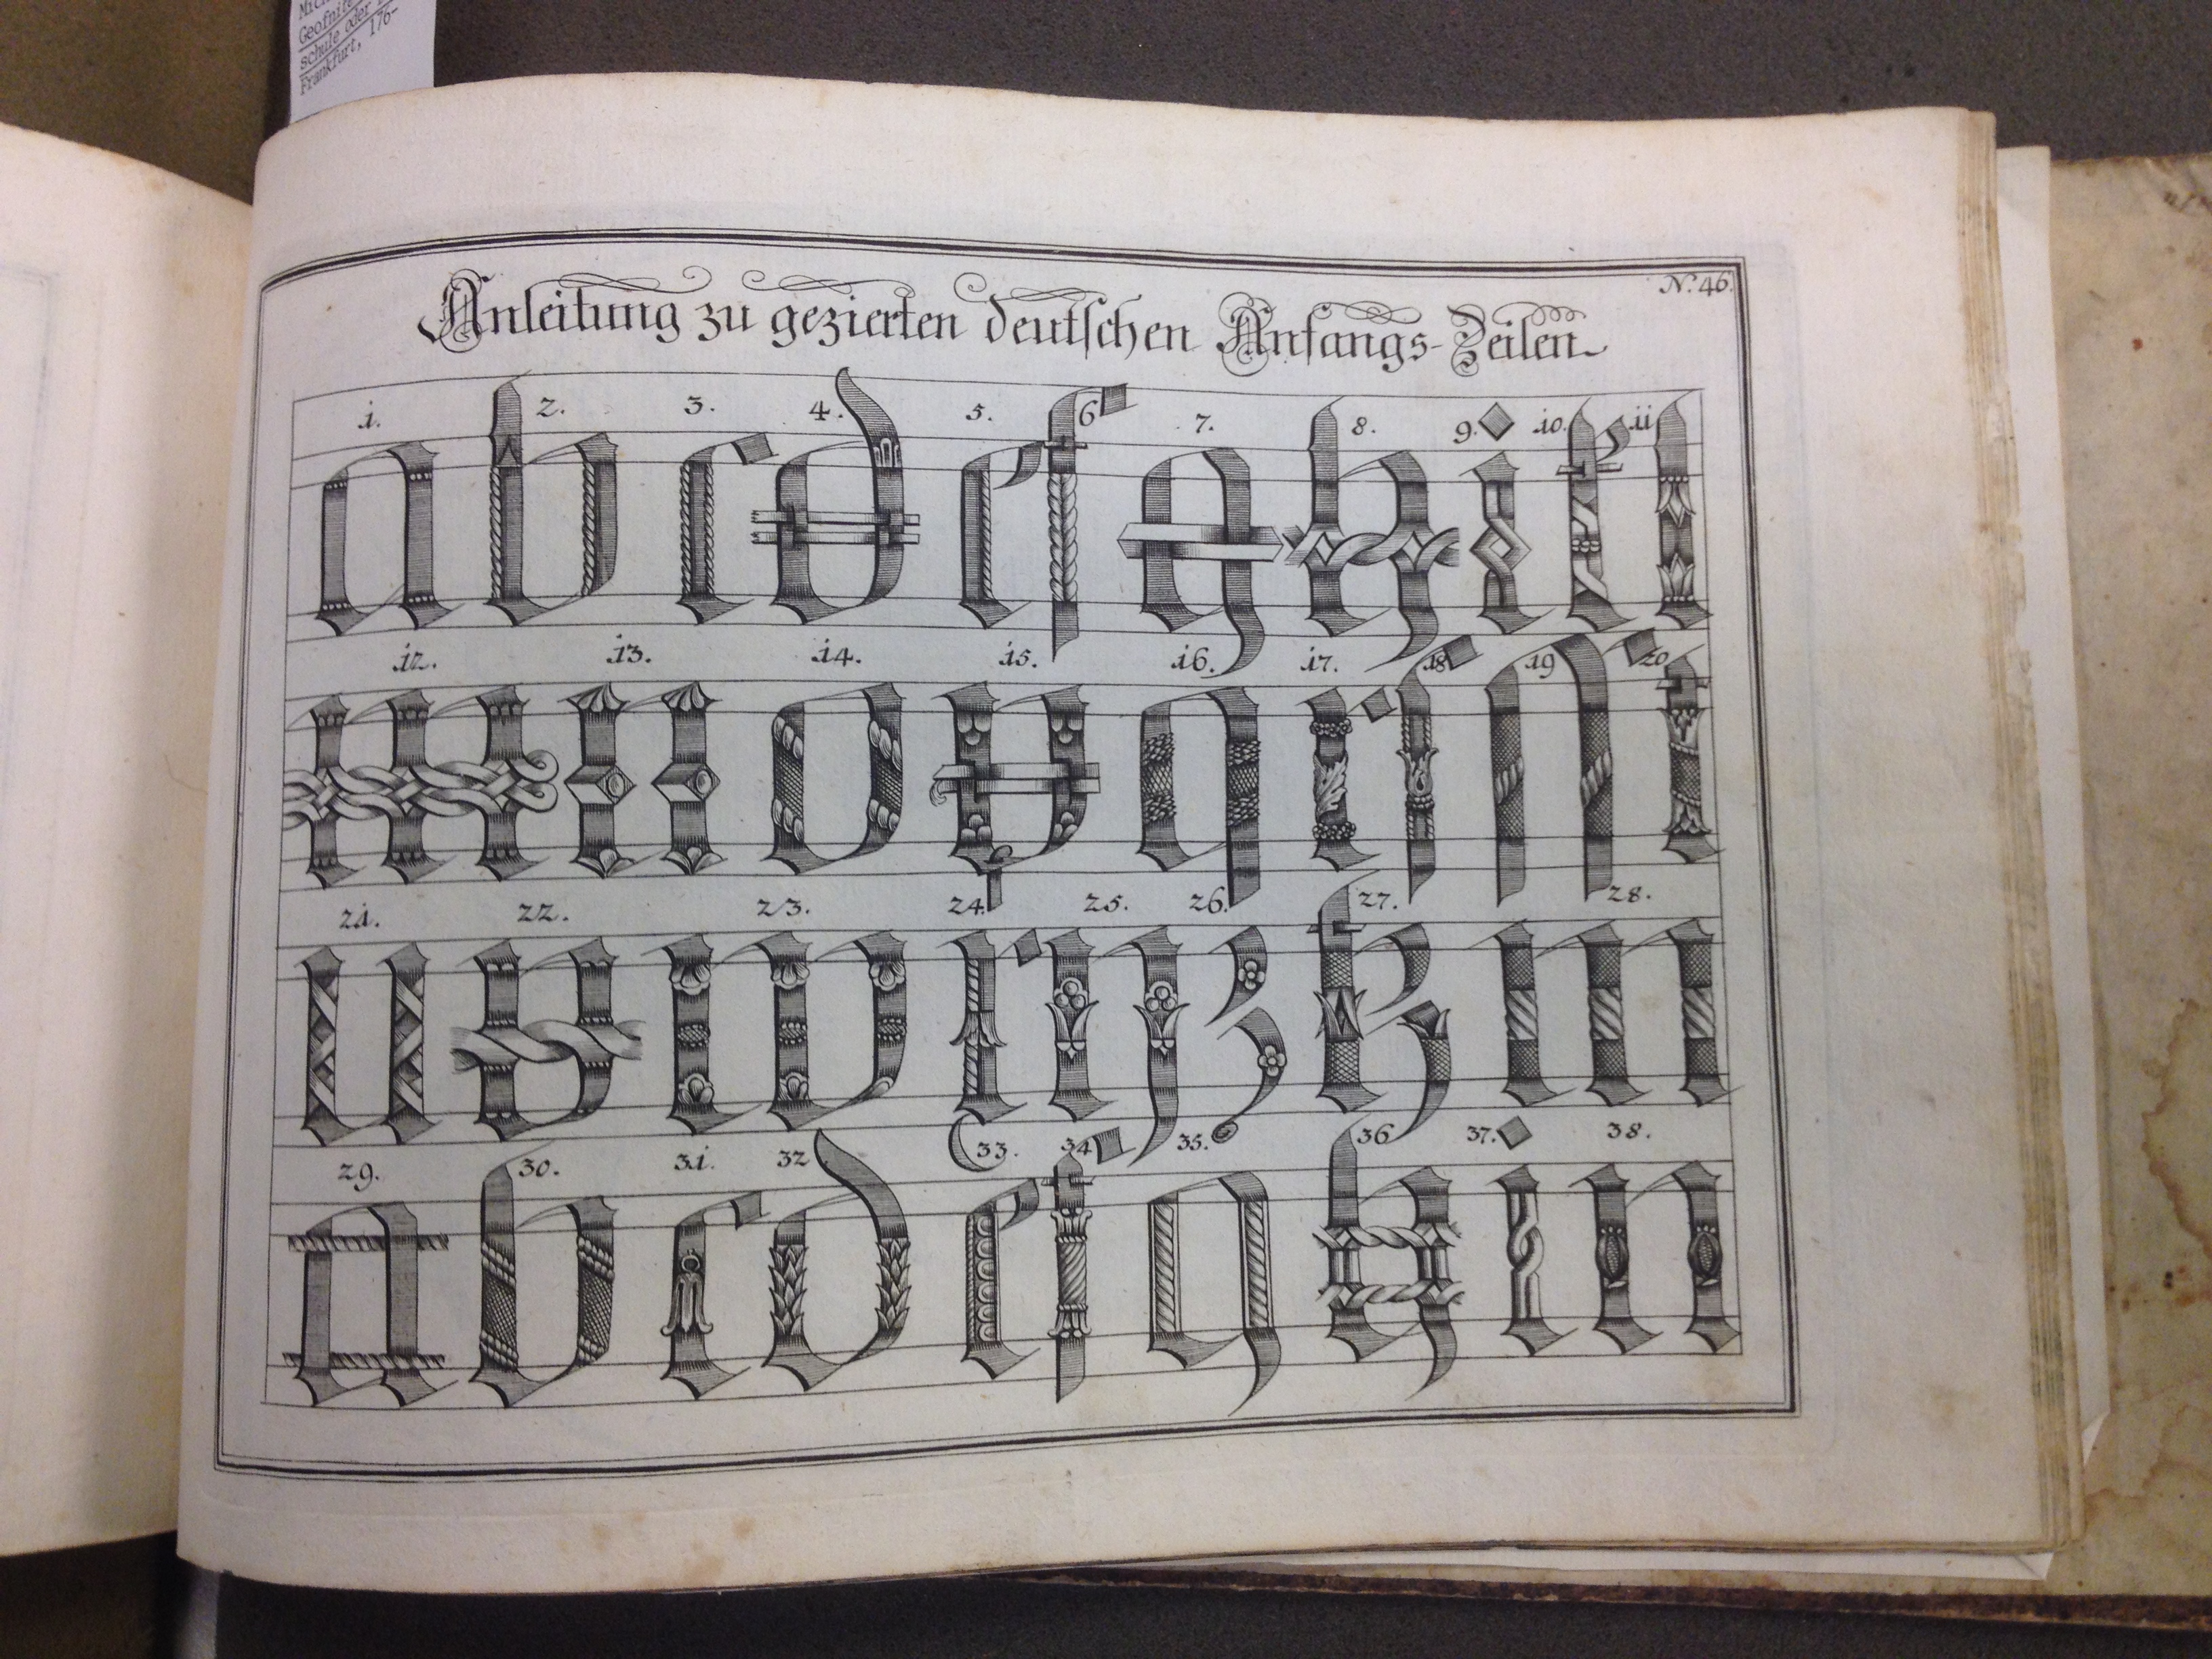 Geofnite
schule oder
Frankfurt, 176-
N.º 46.
Anleitung zu gezierten deutschen Anfangs-Zeilen
1. 2. 3. 4. 5. 6 7. 8. 9. 10. 11
a b c d e f g h i k l
12. 13. 14. 15. 16. 17. 18 19 20
m n o p q r ſ ſſ t
21. 22. 23. 24. 25. 26. 27. 28.
u v w x y z m
29. 30. 31. 32 33. 34 35. 36 37. 38.
a b c d e f g h i n